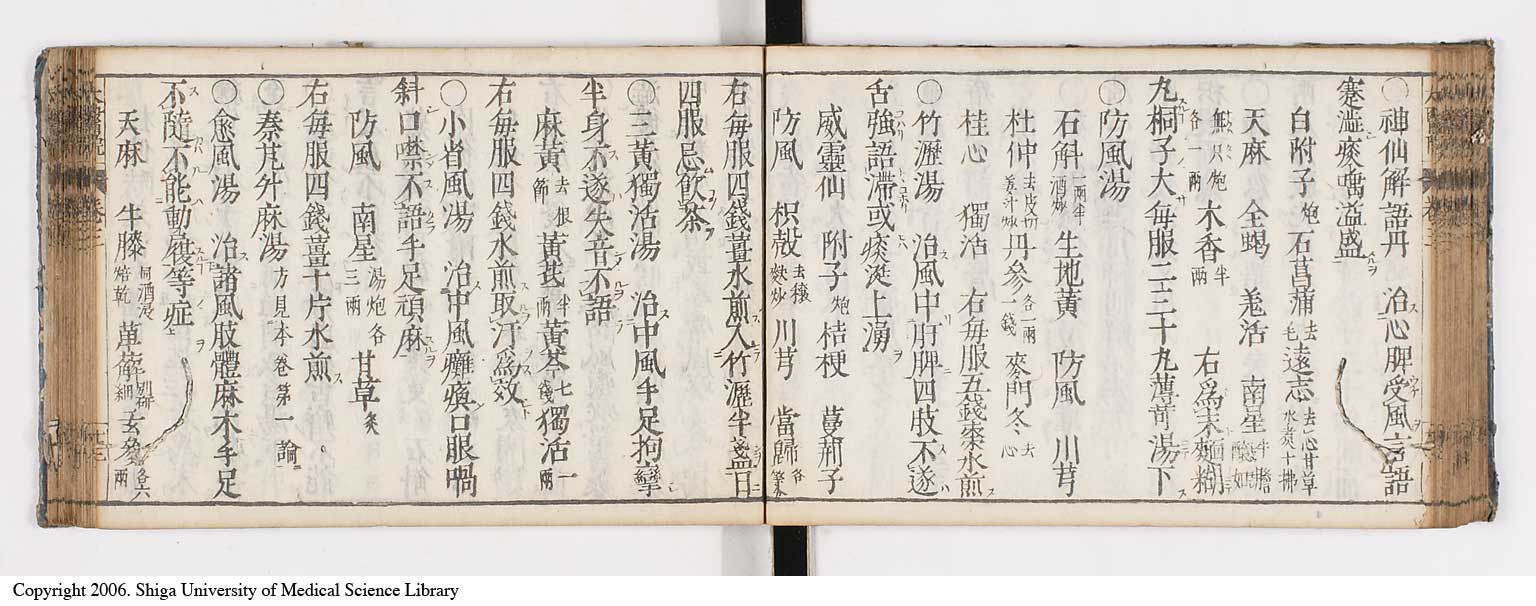 ○神仙解語丹 治心脾受風言語
蹇澁痰喘溢盛
白附子炮石菖蒲去毛遠志去心甘草水煮十沸
天麻 全蝎 羗活 南星牛膽
各一兩木香半兩 右爲末麵糊
丸桐子大毎服二三十丸薄荷湯下
○防風湯
石斛一兩半酒炒 生地黄 防風 川芎
杜仲去皮姜汁炒丹參各一兩一錢 麥門冬去心
桂心 獨活 右毎服五錢棗水煎
○竹瀝湯 治風中肝脾四肢不遂
舌強語滯或痰涎上湧
威靈仙 附子炮桔梗 蔓荊子
防風 枳殻去穰麩炒 川芎 當歸各等
右毎服四錢薑水煎入竹瀝半盞日
四服忌飲茶
○三黄獨活湯 治中風手足拘攣
半身不遂失音不語
麻黄去根節黄芪半兩黄芩七錢獨活一兩
右毎服四錢水煎取汗爲效
○小省風湯 治中風癱瘓口眼喎
斜口噤不語手足頑麻
防風 南星湯炮各三兩 甘草炙
右毎服四錢薑十片水煎
○秦芃升麻湯方見本卷第一論
○愈風湯 治諸風肢體麻木手足
不隨不能動履等症
天麻 牛膝同酒浸焙乾 萆薢別研細玄參各六兩
Copyright 2006. Shiga University of Medical Science Library